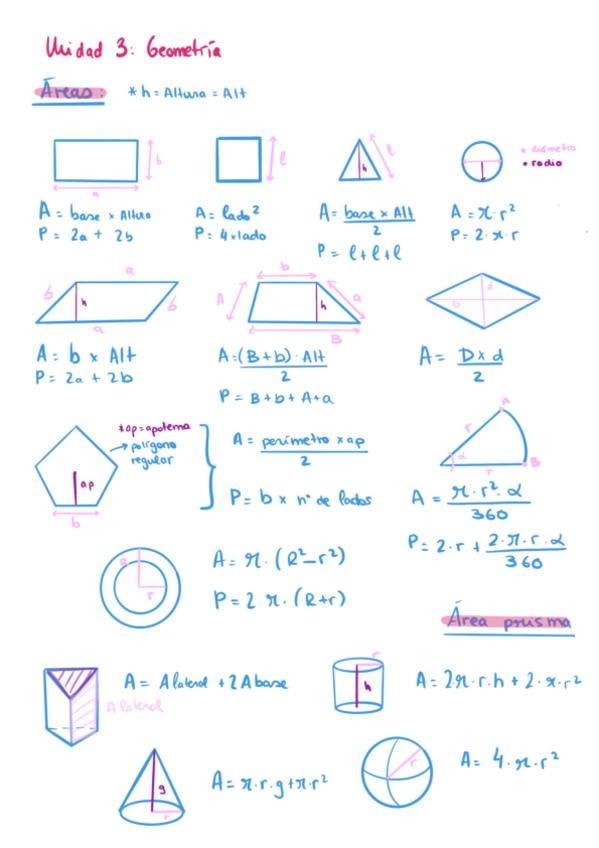 Unidad 3: Geometría
Áreas: * h = Altura = Alt
b
a
l
h
l
• diámetro
• radio
A = base x Altura
P = 2a + 2b
A = lado²
P = 4 x lado
A = base x Alt / 2
P = l + l + l
A = π · r²
P = 2 · π · r
a
b
h
b
a
b
A
h
a
B
d
D
A = b x Alt
P = 2a + 2b
A = (B + b) · Alt / 2
P = B + b + A + a
A = D x d / 2
* ap = apotema
→ polígono
regular
ap
b
A = perímetro x ap / 2
P = b x nº de lados
A
r
α
r
B
A = π · r² · α / 360
P = 2 · r + 2 · π · r · α / 360
R
r
A = π · (R² - r²)
P = 2 π · (R + r)
Área prisma
A = A lateral + 2 A base
A lateral
r
h
A = 2π · r · h + 2 · π · r²
g
r
A = π · r · g + π · r²
r
A = 4 · π · r²